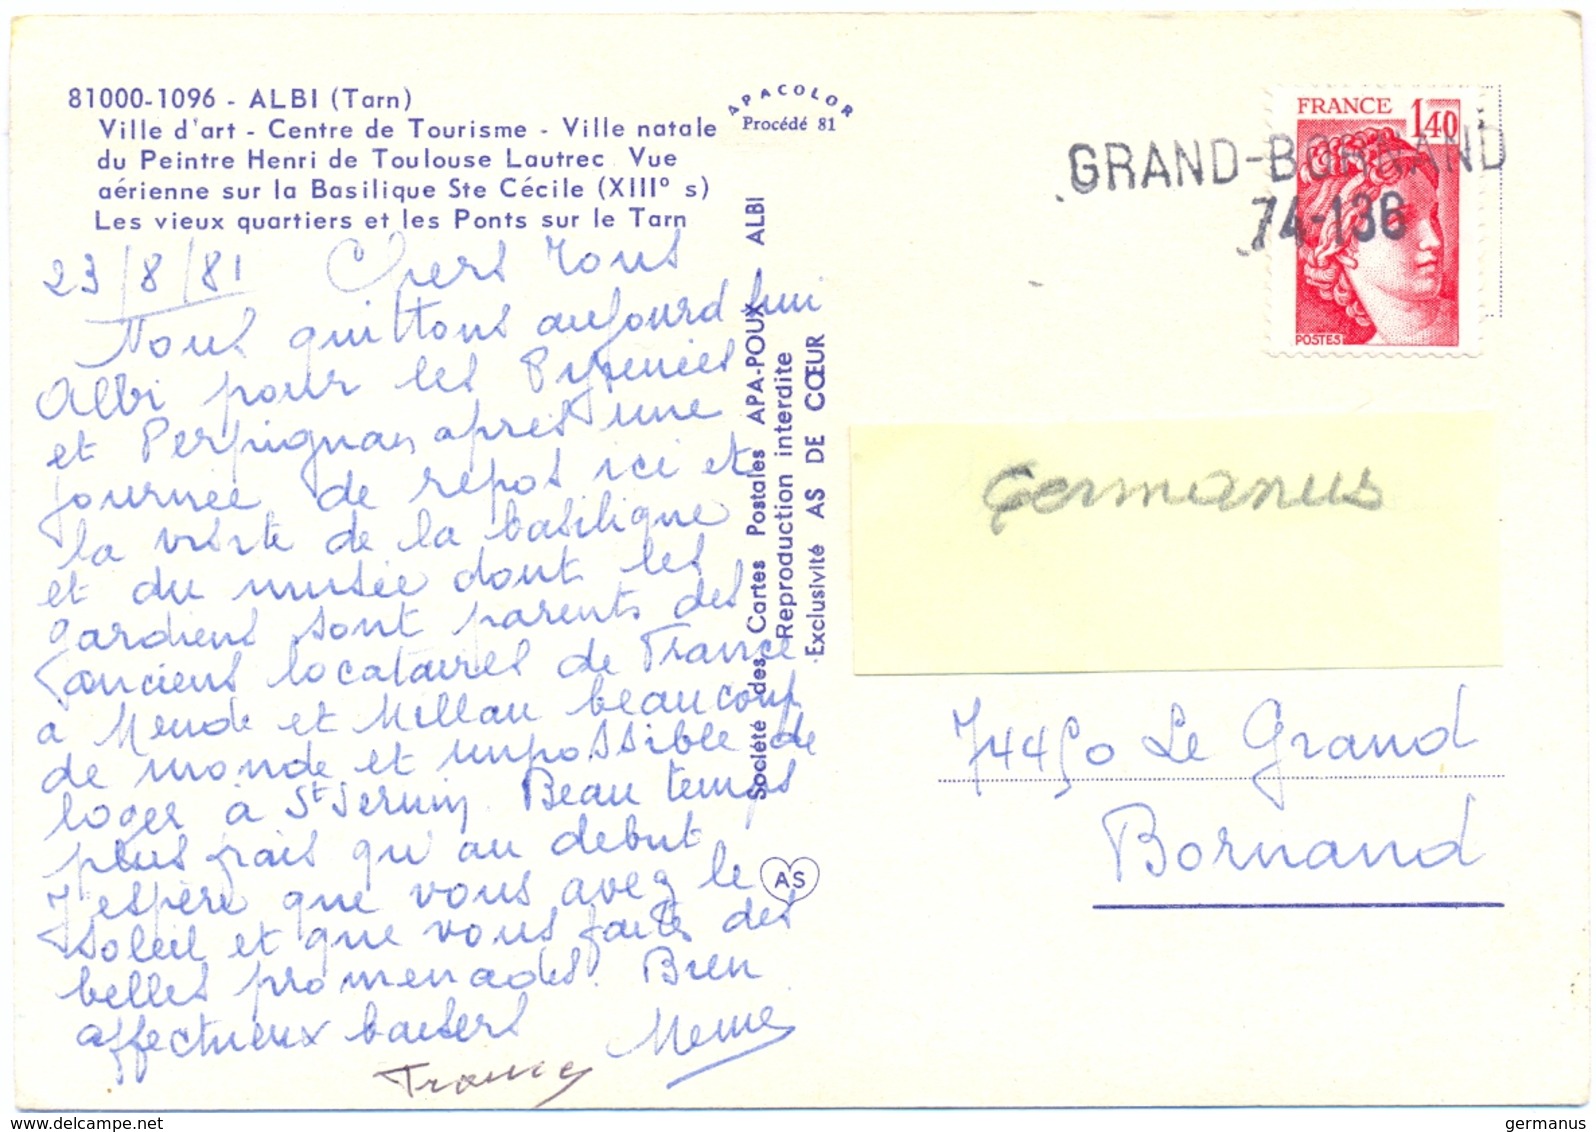 81000-1096 - ALBI (Tarn)
Ville d'art - Centre de Tourisme - Ville natale
du Peintre Henri de Toulouse Lautrec Vue
aérienne sur la Basilique Ste Cécile (XIII° s)
Les vieux quartiers et les Ponts sur le Tarn
APACOLOR
Procédé 81
23/8/81 Chers Tous
Nous quittons aujourd'hui
Albi pour les Pyrenées
et Perpignan après une
journée de repos ici et
la visite de la basilique
et du musée dont les
gardiens sont parents des
anciens locataires de France
a Mende et Millau beaucoup
de monde et impossible de
loger à St Sernin. Beau temps
plus frais qu'au debut
J'espère que vous avez le
soleil et que vous faites des
belles promenades. Bien
affectueux baisers Meme
Société des Cartes Postales APA-POUX - ALBI
Reproduction interdite
Exclusivité AS DE CŒUR
AS
FRANCE 1,40
POSTES
GRAND-BORNAND
74-136
Germanus
74450 Le Grand
Bornand
www.delcampe.net
germanus